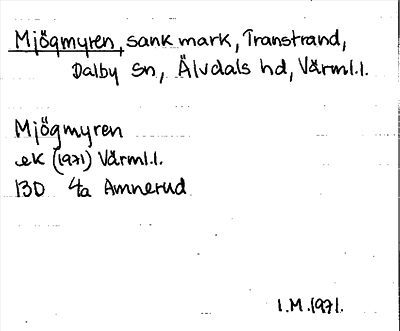 Mjögmyren, sank mark, Transtrand,
Dalby Sn, Älvdals hd, Värml.l.
Mjögmyren
ek (1971) Värml.l.
13D 4a Amnerud
I.M.1971.